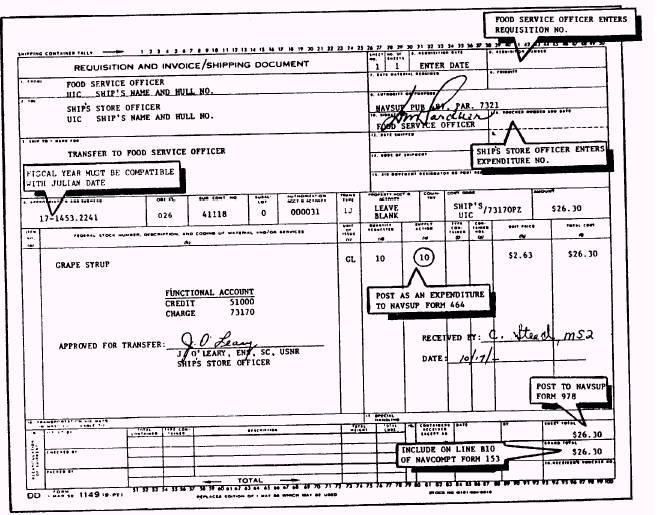 FOOD SERVICE OFFICER ENTERS
REQUISITION NO.
SHIPPING CONTAINER TALLY
1 2 3 4 5 6 7 8 9 10 11 12 13 14 15 16 17 18 19 20 21 22 23 24 25 26 27 28 29 30 31 32 33 34 35 36 37 38
REQUISITION AND INVOICE/SHIPPING DOCUMENT
1 1 ENTER DATE
1. FROM
FOOD SERVICE OFFICER
UIC SHIP'S NAME AND HULL NO.
2. TO
SHIP'S STORE OFFICER
UIC SHIP'S NAME AND HULL NO.
NAVSUP PUB 487, PAR. 7321
FOOD SERVICE OFFICER
TRANSFER TO FOOD SERVICE OFFICER
SHIP'S STORE OFFICER ENTERS
EXPENDITURE NO.
FISCAL YEAR MUST BE COMPATIBLE
WITH JULIAN DATE
17-1453.2241 026 41118 0 000031 1J LEAVE BLANK SHIP'S UIC /73170PZ $26.30
FEDERAL STOCK NUMBER, DESCRIPTION, AND CODING OF MATERIAL AND/OR SERVICES
GRAPE SYRUP GL 10 10 $2.63 $26.30
FUNCTIONAL ACCOUNT
CREDIT 51000
CHARGE 73170
POST AS AN EXPENDITURE
TO NAVSUP FORM 464
APPROVED FOR TRANSFER: J. O'Leary
J. O'LEARY, ENS, SC, USNR
SHIP'S STORE OFFICER
RECEIVED BY: C. Steed, MS2
DATE: 10/17/-
POST TO NAVSUP
FORM 978
SHEET TOTAL
$26.30
GRAND TOTAL
$26.30
INCLUDE ON LINE B10
OF NAVCOMPT FORM 153
TOTAL
DD FORM 1149
REPLACES EDITION OF 1 MAY 58 WHICH MAY BE USED